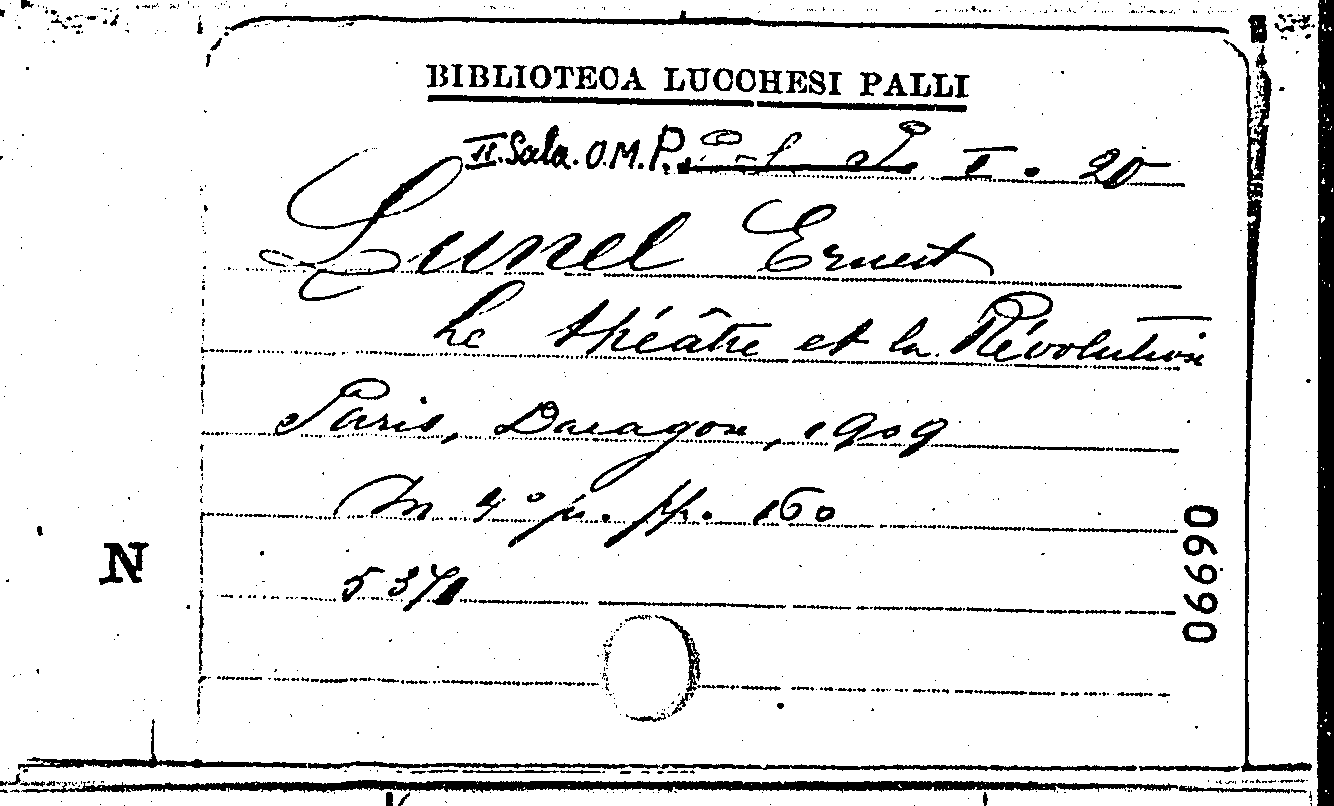 BIBLIOTECA LUCCHESI PALLI
II. Sala. O.M.P. I. 20
Lunel Ernest
Le théâtre et la Révolution
Paris, Daragon, 1909
In 4° p. pp. 160
N
06690